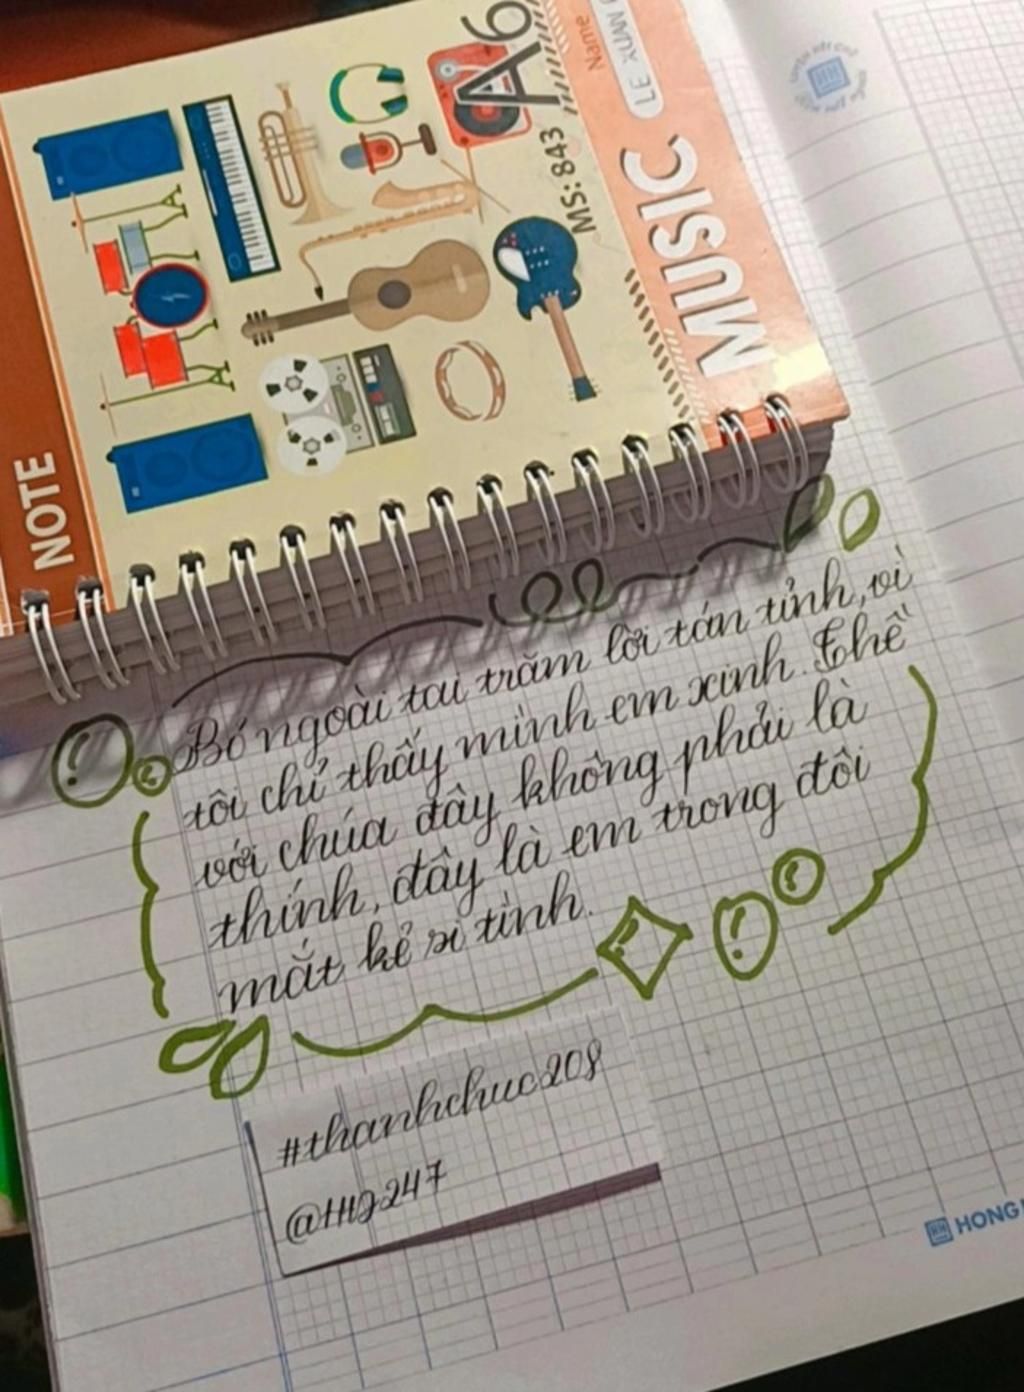 NOTE
A6
MS: 843
MUSIC
Name
LE XUAN
Bỏ ngoài tai trăm lời tán tỉnh, vì
tôi chỉ thấy mình em xinh. Thề
với chúa đây không phải là
thính, đây là em trong đôi
mắt kẻ si tình.
#thanhchuc208
HONG